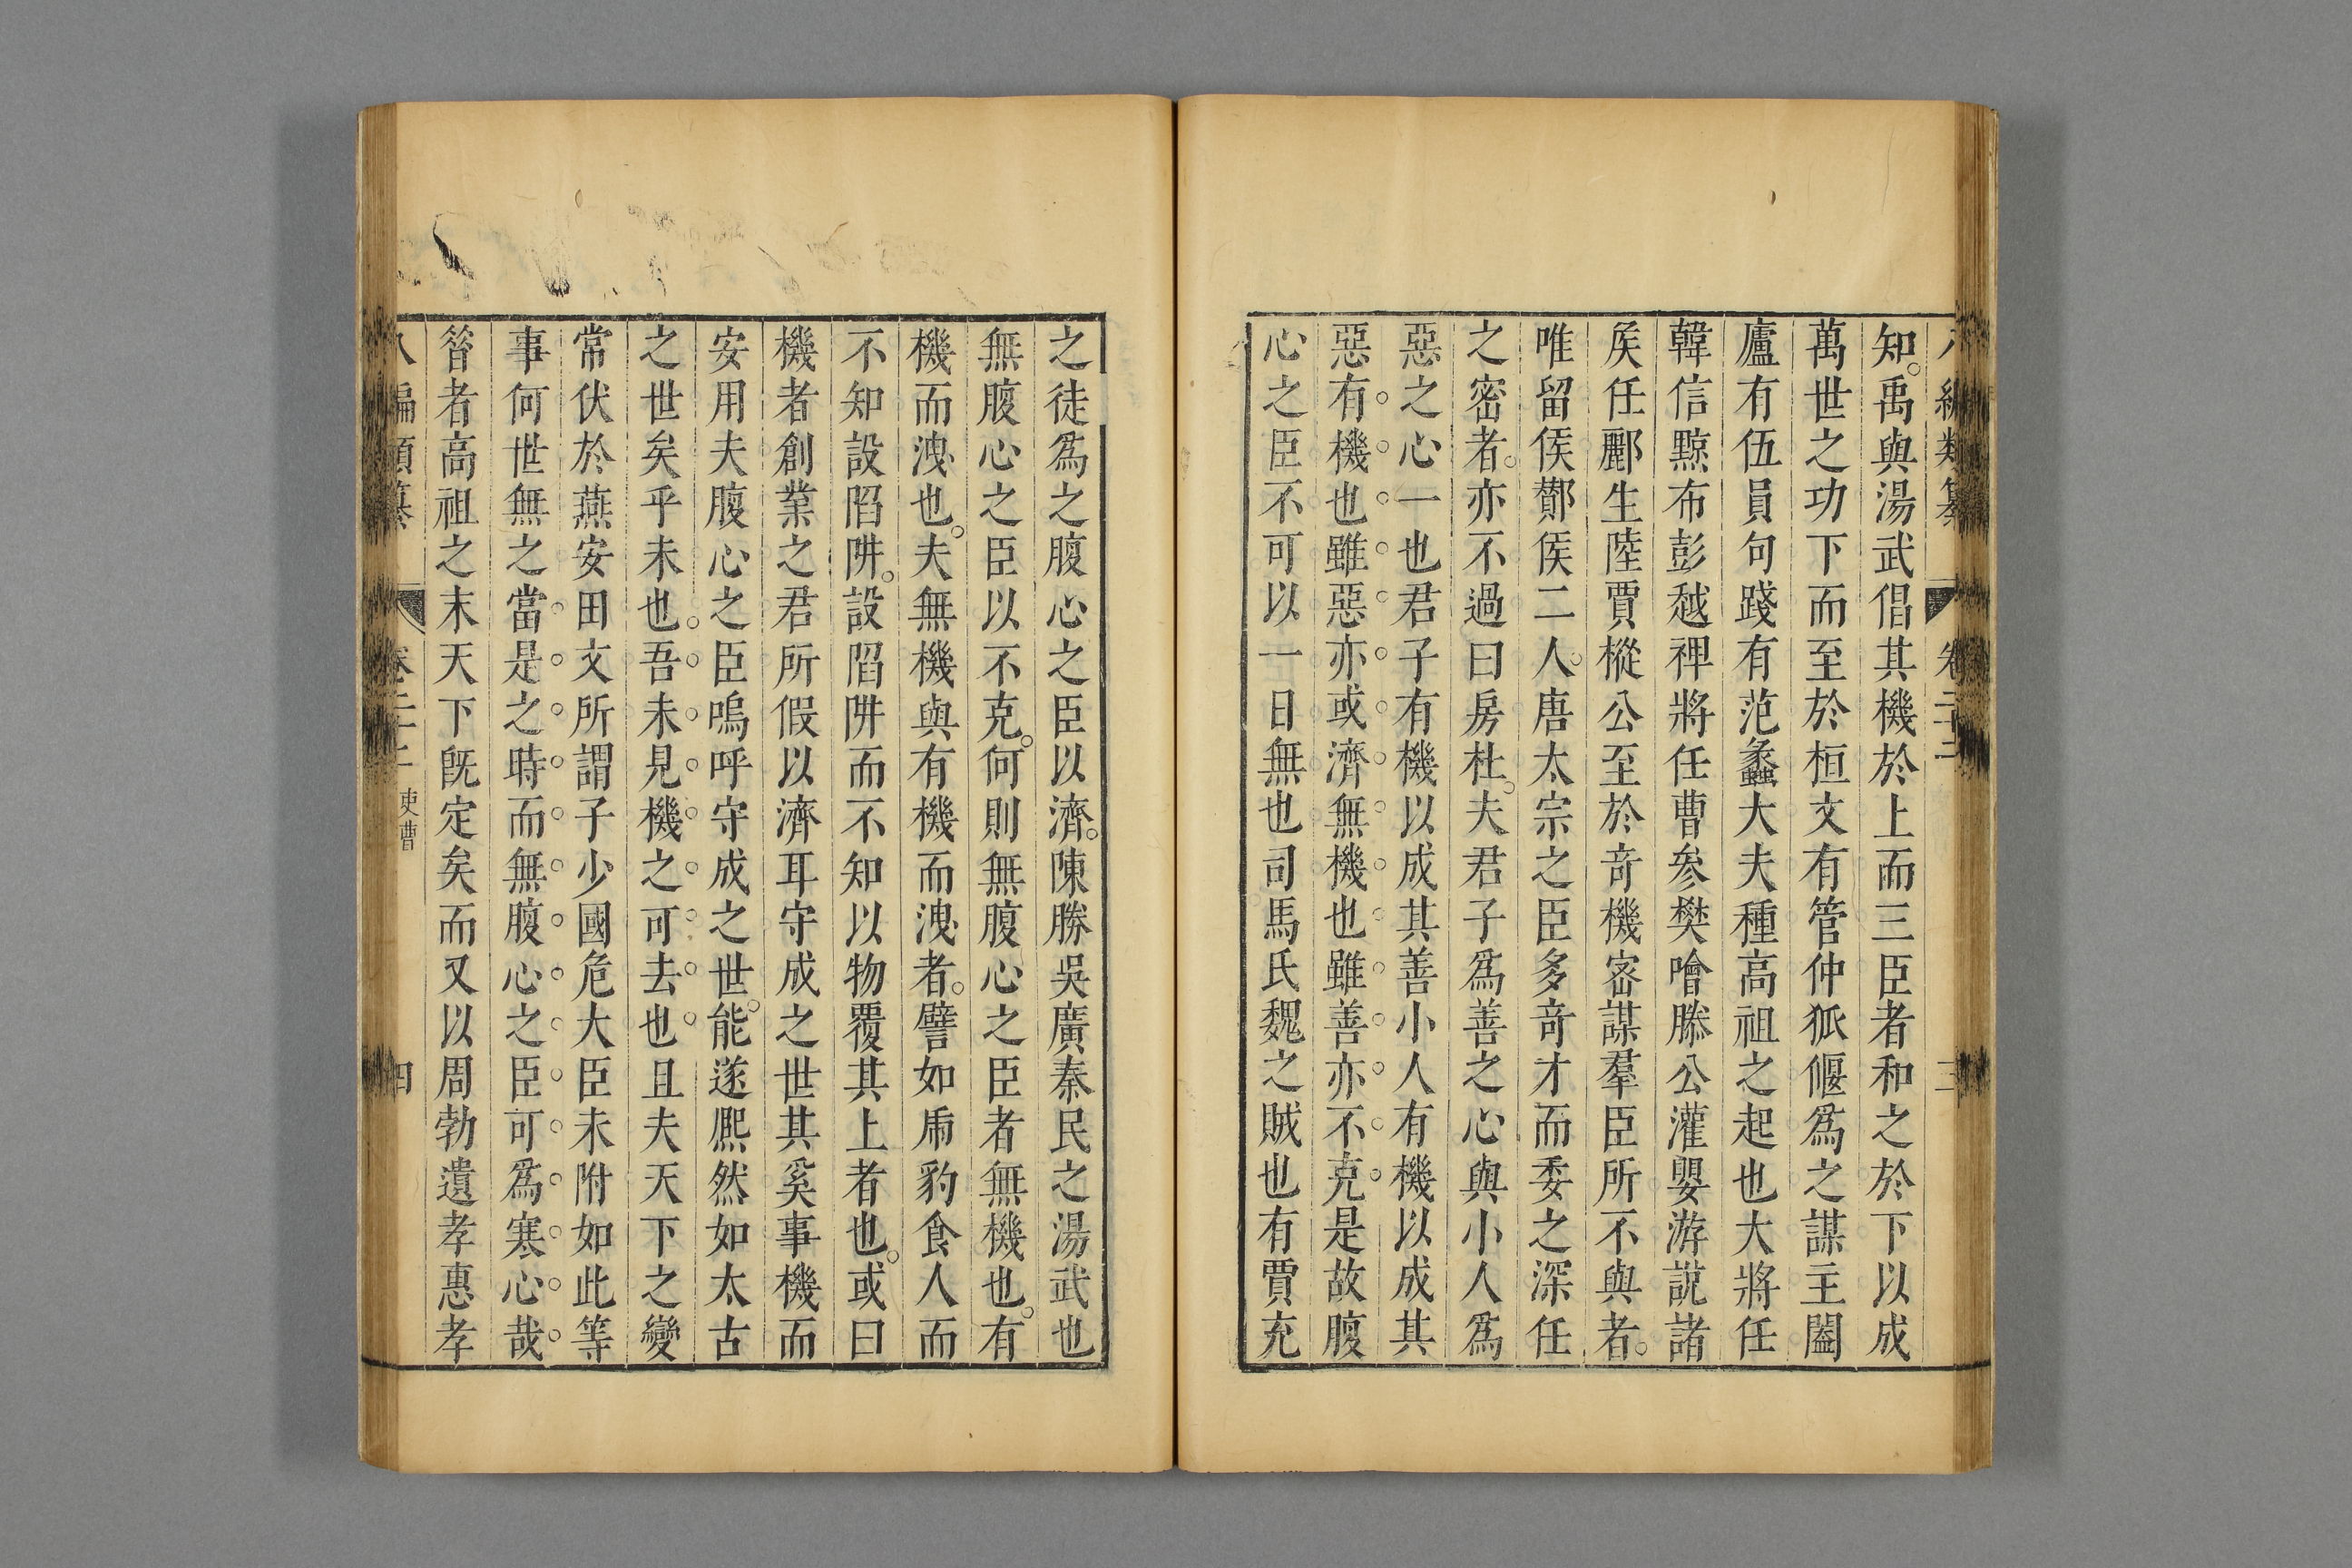 知禹與湯武倡其機於上而三臣者和之於下以成
萬世之功下而至於桓文有管仲狐偃爲之謀主闔
廬有伍員句踐有范蠡大夫種高祖之起也大將任
韓信黥布彭越裨將任曹參樊噲滕公灌嬰游說諸
矦任酈生陸賈樅公至於奇機密謀羣臣所不與者
唯留矦酇矦二人唐太宗之臣多奇才而委之深任
之密者亦不過曰房杜夫君子爲善之心與小人爲
惡之心一也君子有機以成其善小人有機以成其
惡有機也雖惡亦或濟無機也雖善亦不克是故腹
心之臣不可以一日無也司馬氏魏之賊也有賈充
之徒爲之腹心之臣以濟陳勝吳廣秦民之湯武也
無腹心之臣以不克何則無腹心之臣者無機也有
機而洩也夫無機與有機而洩者譬如虎豹食人而
不知設陷阱設陷阱而不知以物覆其上者也或曰
機者創業之君所假以濟耳守成之世其奚事機而
安用夫腹心之臣嗚呼守成之世能遂熈然如太古
之世矣乎未也吾未見機之可去也且夫天下之變
常伏於燕安田文所謂子少國危大臣未附如此等
事何世無之當是之時而無腹心之臣可爲寒心哉
昝者高祖之末天下旣定矣而又以周勃遺孝惠孝
八編類纂 卷二十二 吏曹 四